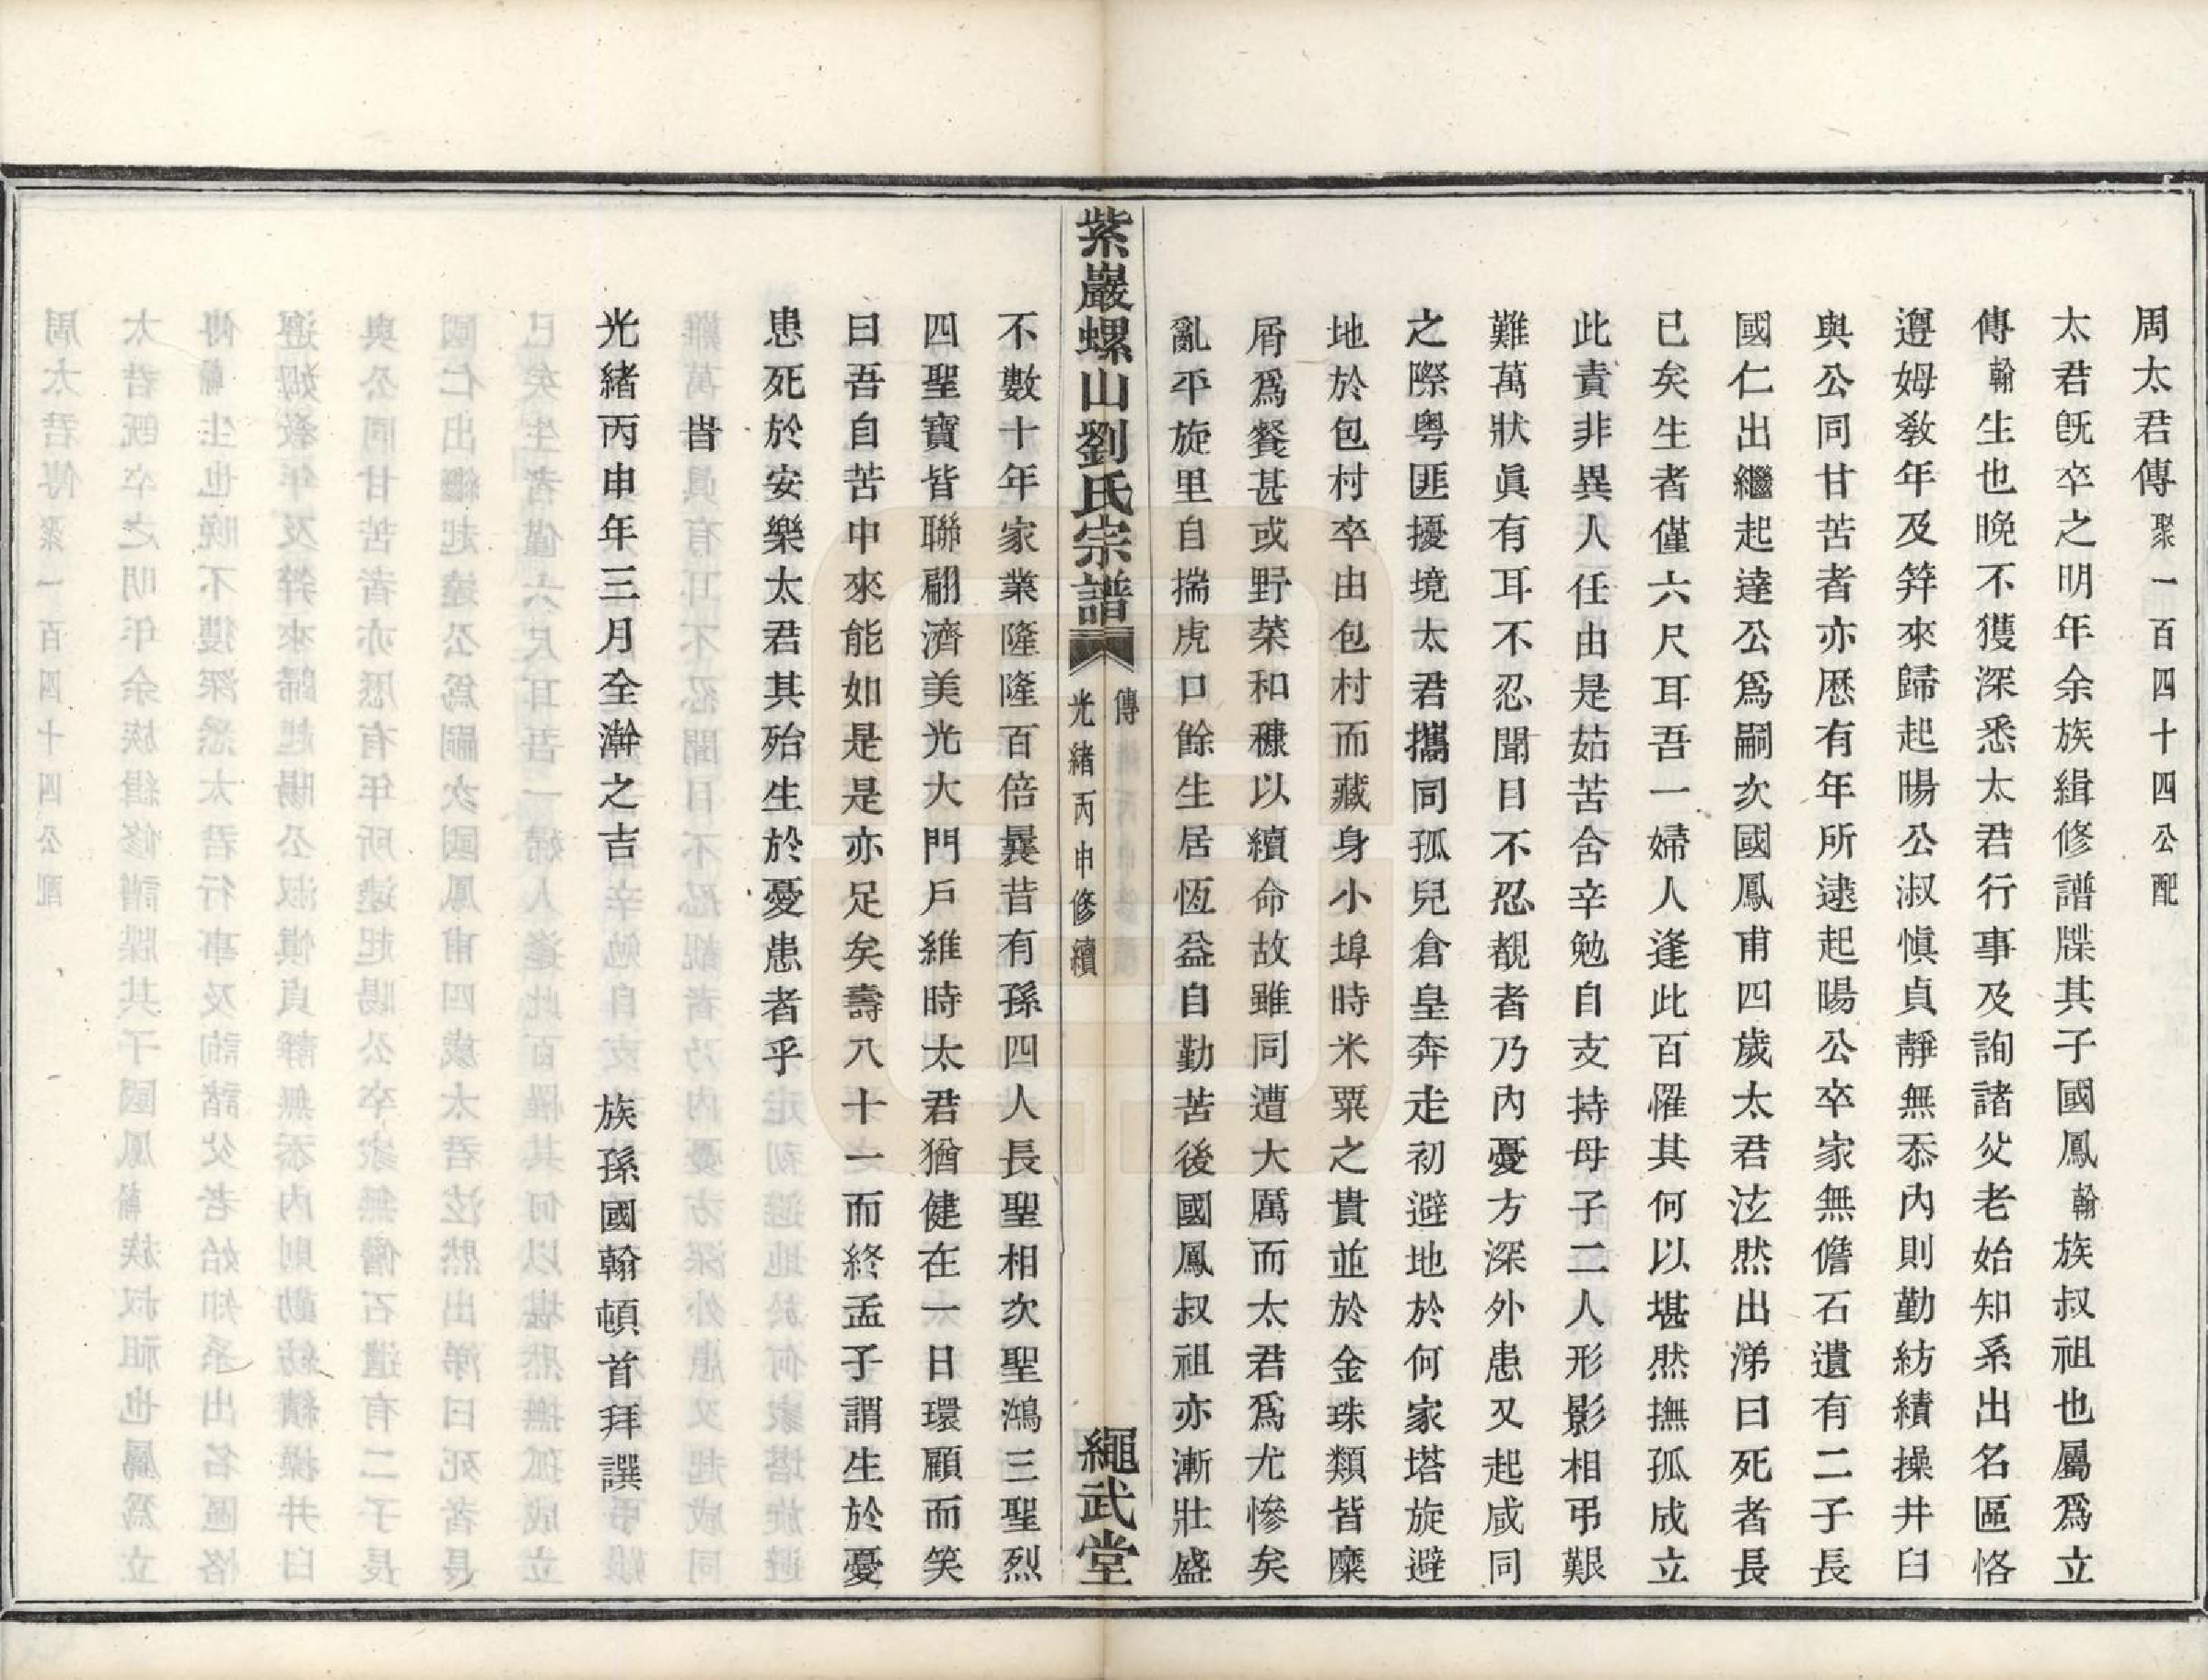 周太君傳聚一百四十四公配
太君旣卒之明年余族緝修譜牒其子國鳳翰族叔祖也屬爲立
傳翰生也晚不獲深悉太君行事及詢諸父老始知系出名區恪
遵姆敎年及笄來歸起暘公淑愼貞靜無忝內則勤紡績操井臼
與公同甘苦者亦歷有年所逮起暘公卒家無儋石遺有二子長
國仁出繼起達公爲嗣次國鳳甫四歲太君泣然出涕曰死者長
已矣生者僅六尺耳吾一婦人逢此百罹其何以堪然撫孤成立
此責非異人任由是茹苦含辛勉自支持母子二人形影相弔艱
難萬狀眞有耳不忍聞目不忍覩者乃內憂方深外患又起咸同
之際粵匪擾境太君攜同孤兒倉皇奔走初避地於何家塔旋避
地於包村卒由包村而藏身小埠時米粟之貴並於金珠類皆糜
屑爲餐甚或野菜和糠以續命故雖同遭大厲而太君爲尤慘矣
亂平旋里自揣虎口餘生居恆益自勤苦後國鳳叔祖亦漸壯盛
紫巖螺山劉氏宗譜
傳
光緒丙申修續
繩武堂
不數十年家業隆隆百倍曩昔有孫四人長聖相次聖鴻三聖烈
四聖寶皆聯翩濟美光大門戶維時太君猶健在一日環顧而笑
曰吾自苦中來能如是是亦足矣壽八十一而終孟子謂生於憂
患死於安樂太君其殆生於憂患者乎
旹
光緒丙申年三月全澣之吉 族孫國翰頓首拜譔